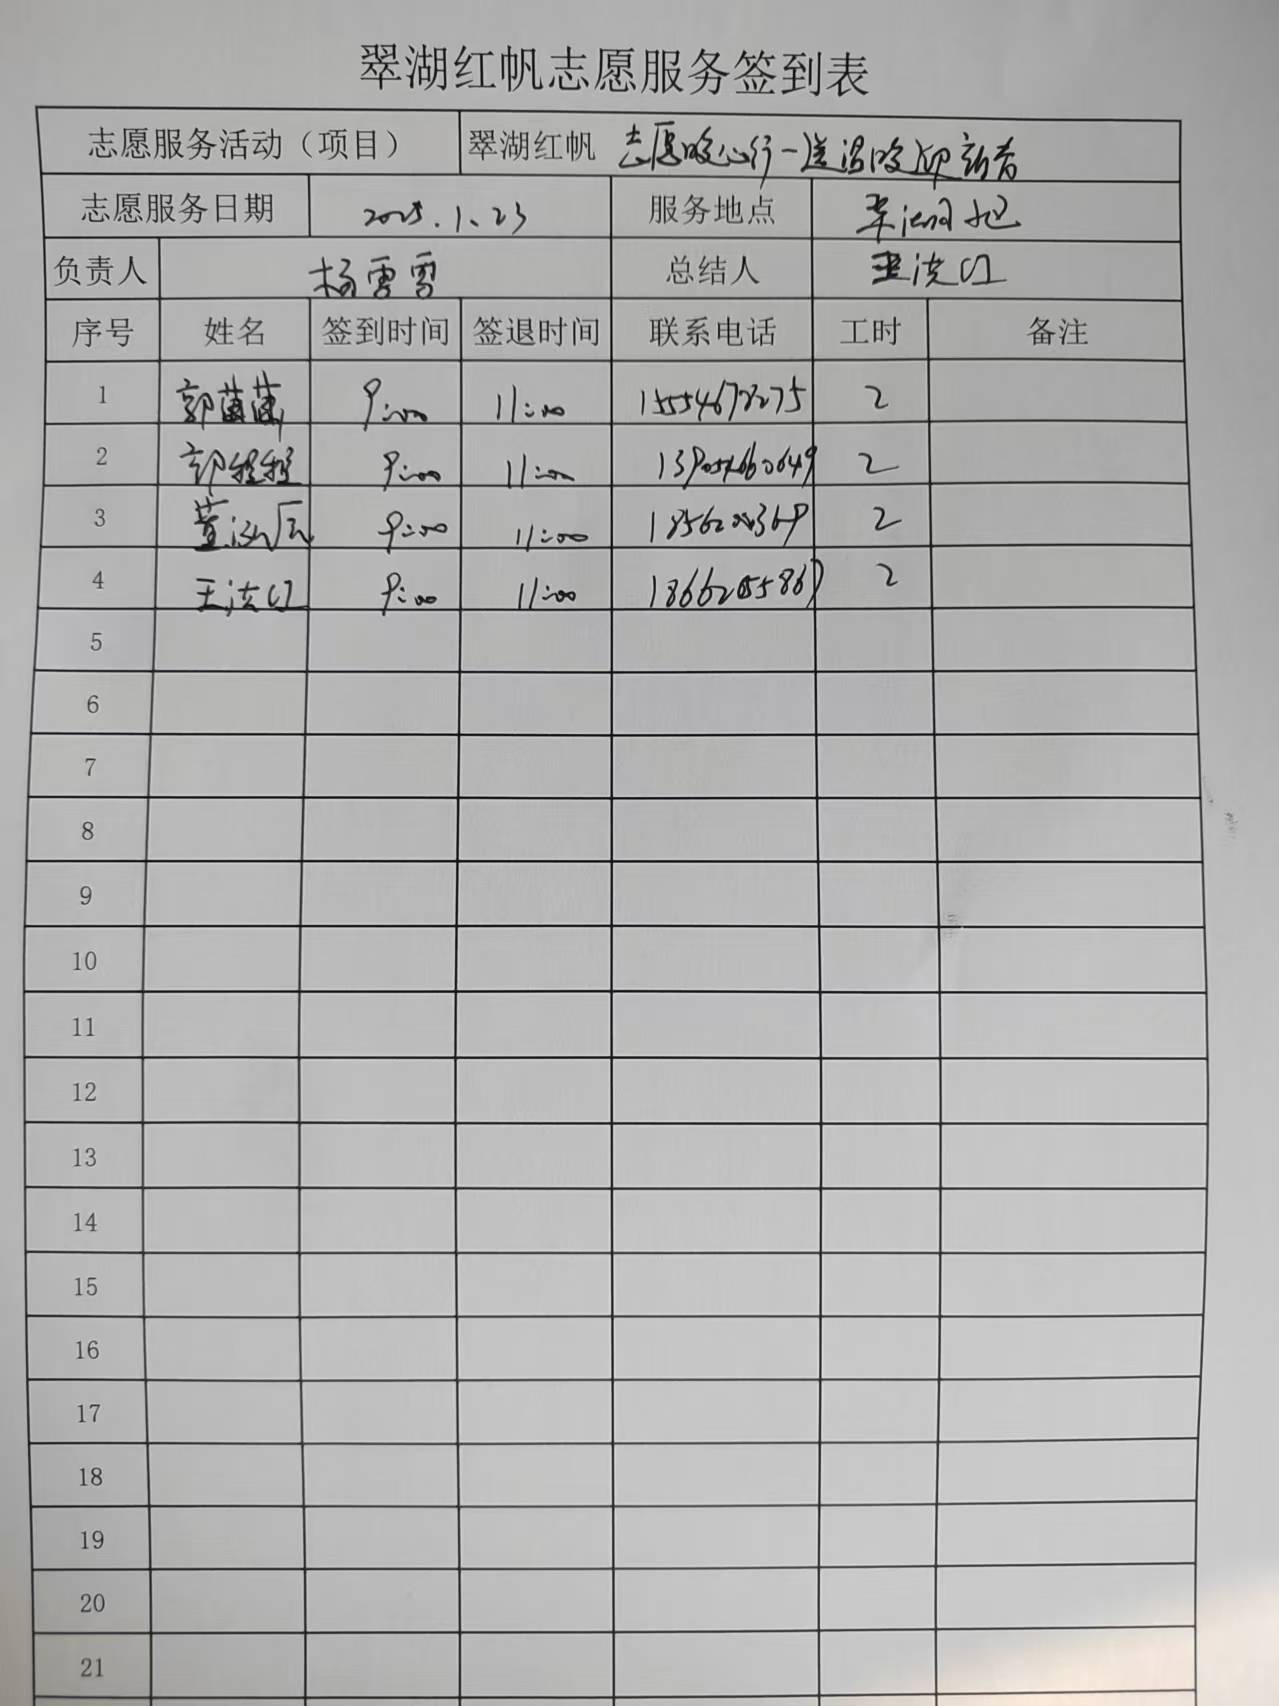 翠湖红帆志愿服务签到表
志愿服务活动（项目） 翠湖红帆 志愿暖心行一送温暖迎新春
志愿服务日期 2025.1.23 服务地点 翠湖社区
负责人 杨雪雪 总结人 王法江
序号 姓名 签到时间 签退时间 联系电话 工时 备注
1 郭 9:00 11:00 15554672275 2
2 9:00 11:00 2
3 董 9:00 11:00 2
4 王法江 9:00 11:00 2
5
6
7
8
9
10
11
12
13
14
15
16
17
18
19
20
21